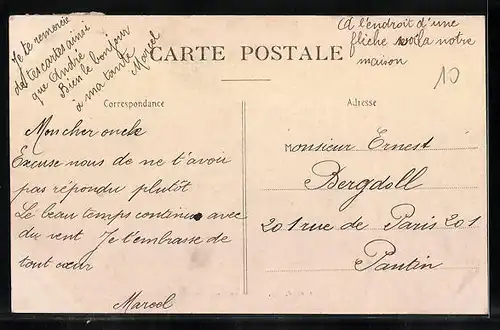 Je te remercie
de tes cartes ainsi
que André
Bien le bonjour
à ma tante
Marcel
A l'endroit d'une
fliche voila notre
maison
CARTE POSTALE
10
Correspondance
Adresse
Mon cher oncle
Excuse nous de ne t'avoir
pas répondu plutôt
Le beau temps continue avec
du vent Je t'embrasse de
tout cœur
Marcel
Monsieur Ernest
Bergdoll
201 rue de Paris 201
Pantin